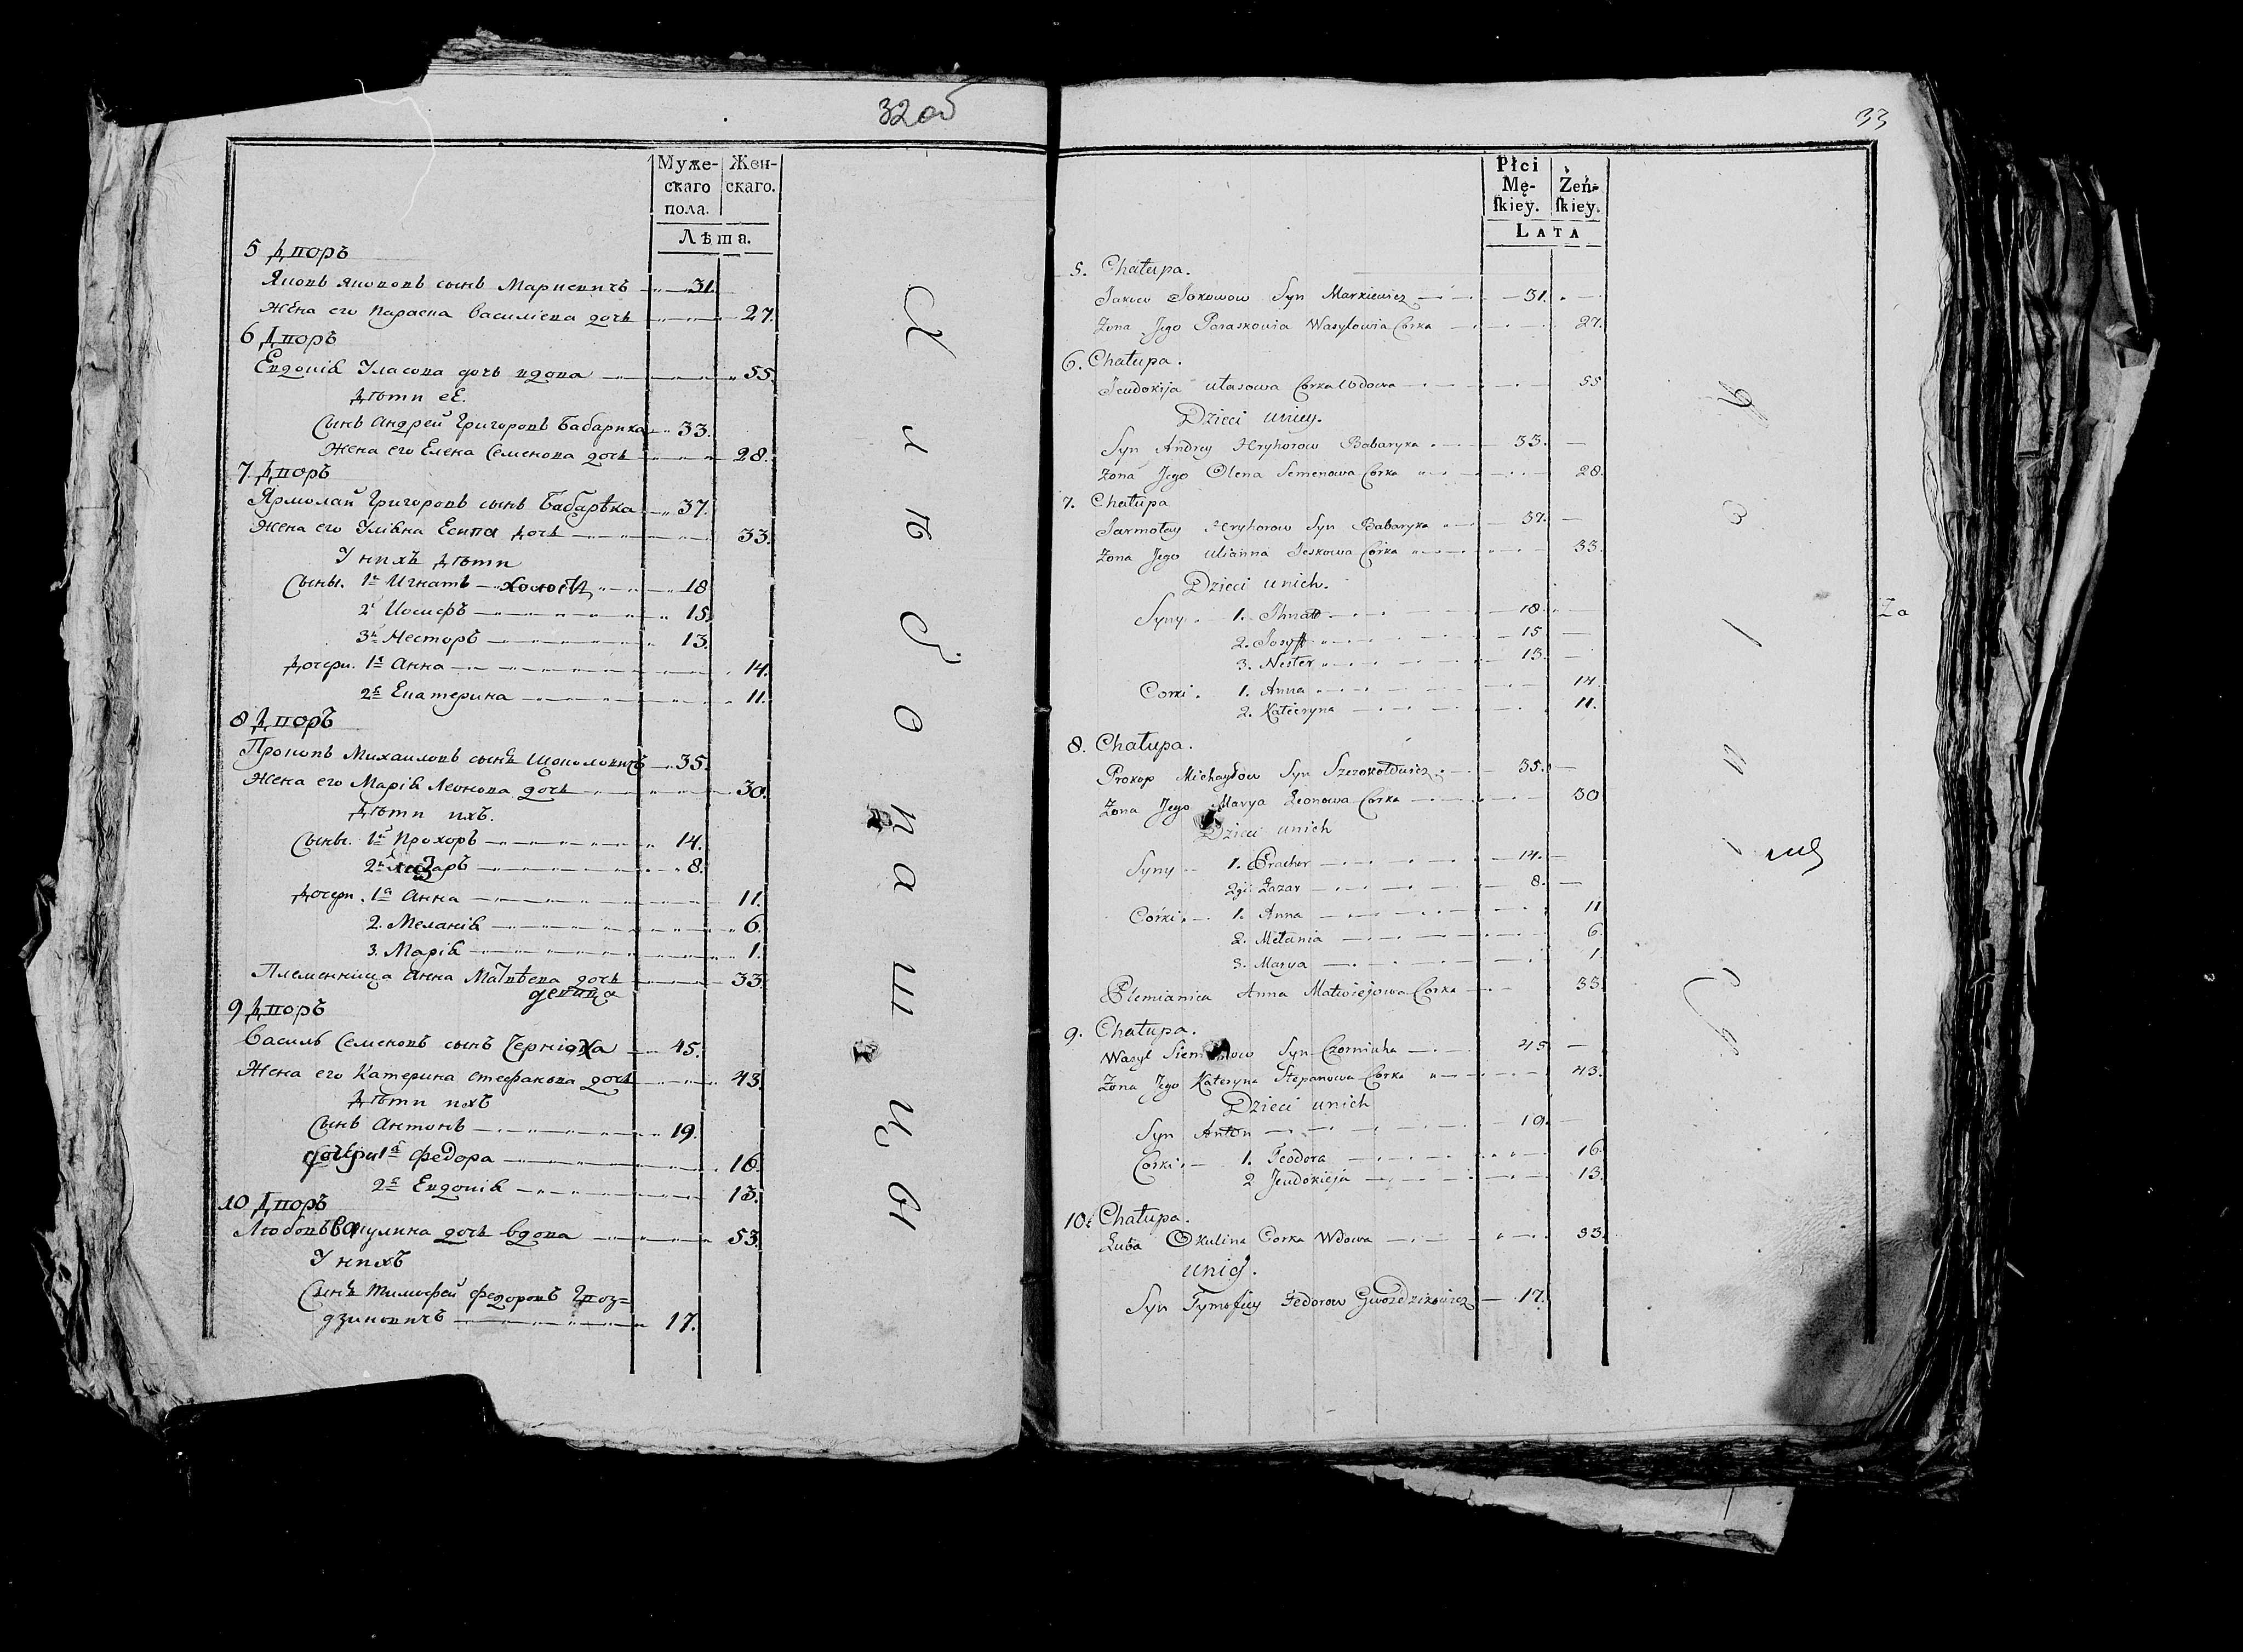 32 об
Муже-
скаго
пола.
Жен-
скаго.
Лѣта.
5 Дворъ
Яковъ Яковов сынъ Маркевичъ 31.
Жена его Параска василіева дочь 27.
6 Дворъ
Евдокія Уласова дочь вдова 55.
Дѣти еѐ.
Сынъ Андрей Григоровъ Бабарика 33.
Жена его Елена Семенова дочь 28.
7. Дворъ
Ярмолай Григоровъ сынъ Бабарѣка 37.
Жена его Уліяна Есипа дочь 33.
У нихъ дѣти
Сыны. 1й Игнатъ холостъ 18
2й Иосифъ 15.
3й Несторъ 13.
Дочери. 1я Анна 14.
2я Екатерина 11.
8 Дворъ
Прокопъ Михайловъ сынъ 35.
Жена его Марія Леонова дочь 30.
Дѣти ихъ.
Сыны. 1й Прохоръ 14.
2й Лазаръ 8.
Дочери. 1я Анна 11.
2. Меланія 6.
3. Марія 1.
Племенница Анна Матвѣева дочь 33
девица
9 Дворъ
Василь Семеновъ сынъ Черніюха 45.
Жена его Катерина Стефанова дочь 43.
Дѣти ихъ
Сынъ Антонъ 19.
дочери 1я Федора 16.
2я Евдокія 13.
10 Дворъ
Любовъ дочь вдова 53.
У нихъ
Сынъ Тимофей Федоровъ Гвоз=
дзиковичъ 17.
33
Płci
Mę-
ſkiey.
Żeń-
ſkiey.
LATA
5. Chałupa.
Jakow Jakowow Syn Markiewicz 31.
Zona Jego Paraskowia Wasylowia Corka 27.
6. Chałupa.
Jeudokija Ułasowa Corka Wdowa 55
Dzieci uniey.
Syn Andrey Hryhorow Babaryka 33.
Zona Jego Olena Semenowa Corka 28.
7. Chałupa
Jarmołay Hryhorow Syn Babaryka 37.
Zona Jego Ulianna Jeskowa Corka 33.
Dzieci unich.
Syny. 1. Ihnatt 18.
2. Josyff 15
3. Nester 13.
Corki. 1. Anna 14.
2. Kateryna 11.
8. Chałupa.
Prokop Michayłow Syn 35.
Zona Jego Marya Leonowa Corka 30
Dzieci unich
Syny 1. Prachor 14.
2gi. Łazar 8.
Corki. 1. Anna 11
2. Mełania 6.
3. Marya 1.
Plemianica Anna Matwiejowa Corka 33.
9. Chałupa.
Wasyl Siemionow Syn Czorniuha 45
Zona Jego Kateryna Stepanowa Corka 43.
Dzieci unich
Syn Anton 19.
Corki. 1. Teodora 16.
2 Jeudokieja 13.
10. Chałupa.
Luba Okulina Corka Wdowa 53.
unież.
Syn Tymofiey Fedorow Gwozdzikowicz 17.
Za